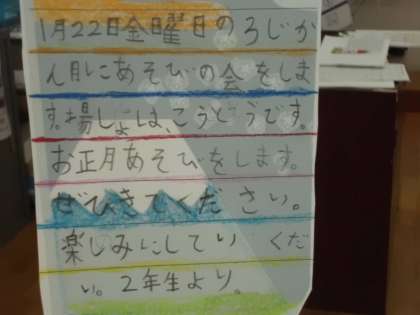 1月22日金曜日のろじか
ん目にあそびの会をしま
す。場しょは、こうどうです。
お正月あそびをします。
ぜひきてください。
楽しみにしてい くだ
い。2年生より。